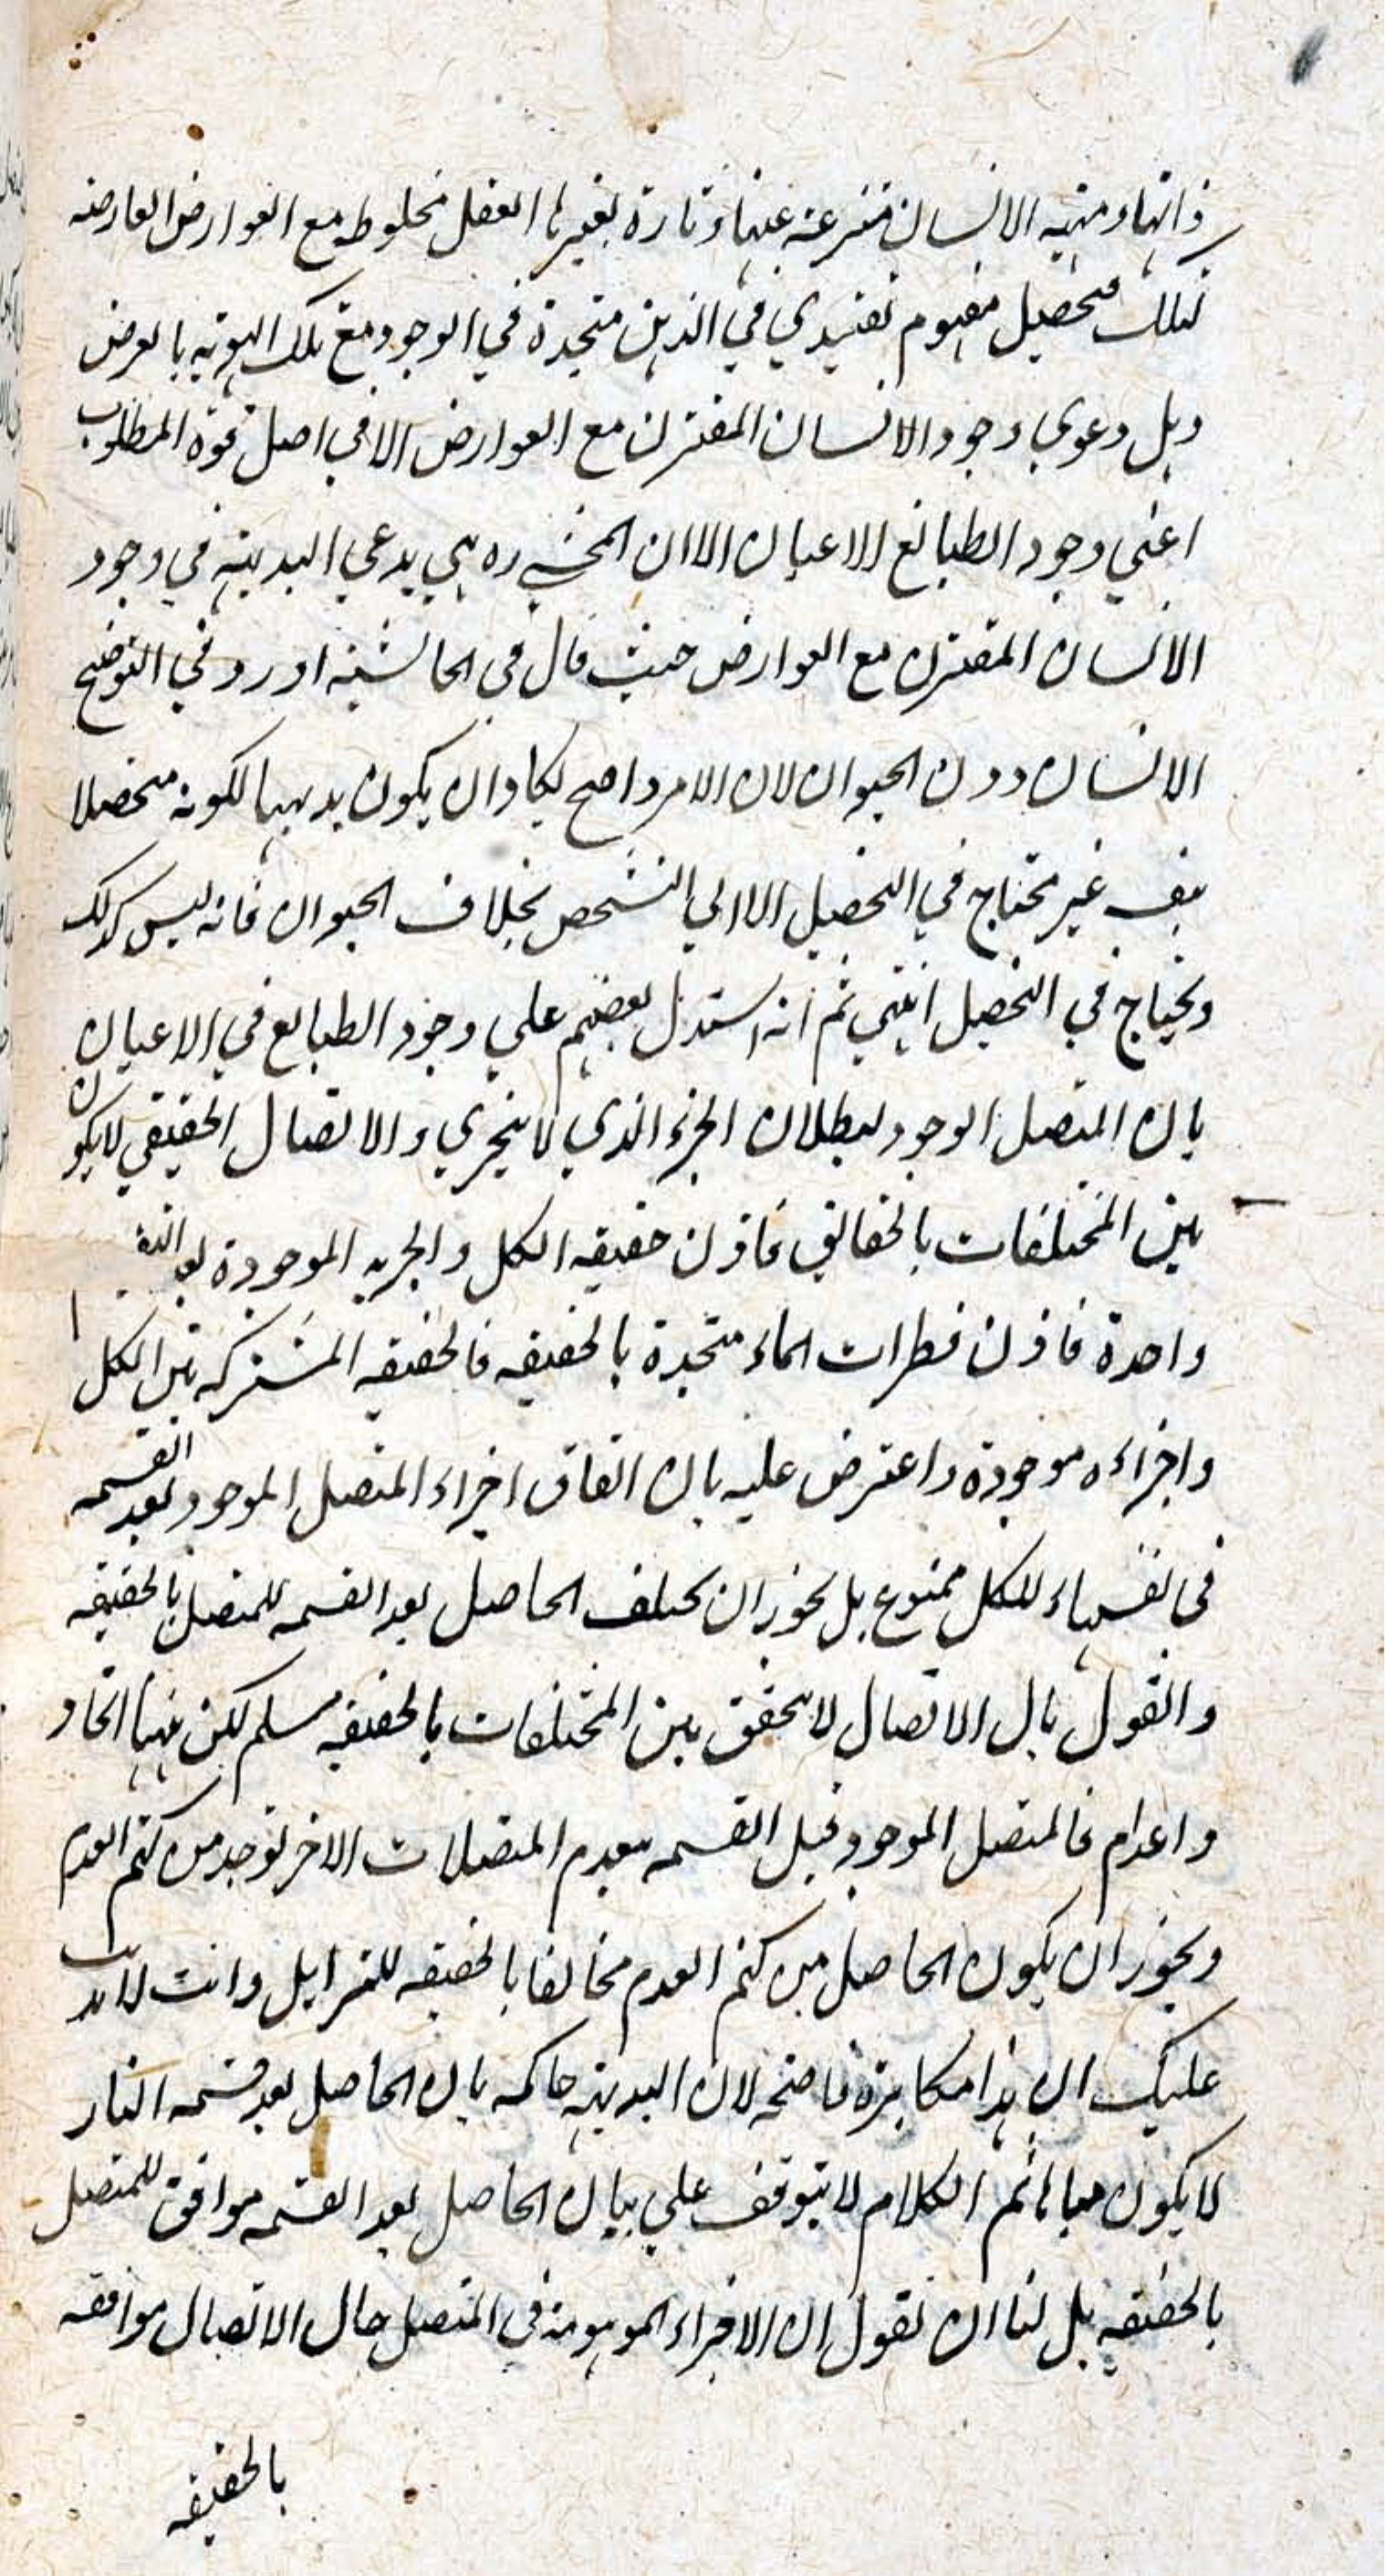 ذاتها ومهية الانسان منتزعة عنها وتارة يعتبرها العقل مخلوطه مع العوارض العارضه
لتلك فيحصل مفهوم تقييدي في الذهن متحدة في الوجود مع تلك الهويه بالعرض
وهل دعوي وجود الانسان المقترن مع العوارض الا في اصل قوة المطلوب
اعني وجود الطبائع الاعيان الا ان المحشي ره هي يدعي البديهة في وجود
الانسان المقترن مع العوارض حيث قال في الحاشيه اورد في التوضيح
الانسان دون الحيوان لان الامر واضح يكاد ان يكون بديهيا لكونه متحصلا
بنفسه غير محتاج في التحصيل الا الي التشخص بخلاف الحيوان فانه ليس كذلك
ويحتاج في التحصيل انتهي ثم انه استدل بعضهم علي وجود الطبايع في الاعيان
بان المتصل الوجود لبطلان الجزء الذي لا يتجزي والاتصال الحقيقي لا يكون
بين المختلفات بالحقائق فاذن حقيقه الكل والجزء الموجودة بعد
واحدة فاذن قطرات الماء متحدة بالحقيقه فالحقيقه المشتركه بين الكل
واجزاءه موجودة واعترض عليه بان اتفاق اجزاء المتصل الموجود بعد القسمه
في نفسها للكل ممنوع بل يجوز ان يختلف الحاصل بعد القسمه للمتصل بالحقيقه
والقول بان الاتصال لا يتحقق بين المختلفات بالحقيقه مسلم لكن ههنا اتحاد
واعدام فالمتصل الموجود قبل القسمه يعدم المتصلات الاخر توجد من كتم العدم
ويجوز ان يكون الحاصل من كتم العدم مخالفا بالحقيقه للتزايل وانت لا يذهب
عليك ان هذا مكابرة فاضحه لان البديهة حاكمه بان الحاصل بعد قسمه النار
لا يكون ثم الكلام لا يتوقف علي بيان الحاصل بعد القسمه موافق للمتصل
بالحقيقه بل لنا ان نقول ان الاجزاء الموهومة في المتصل حال الاتصال موافقه
بالحقيقه